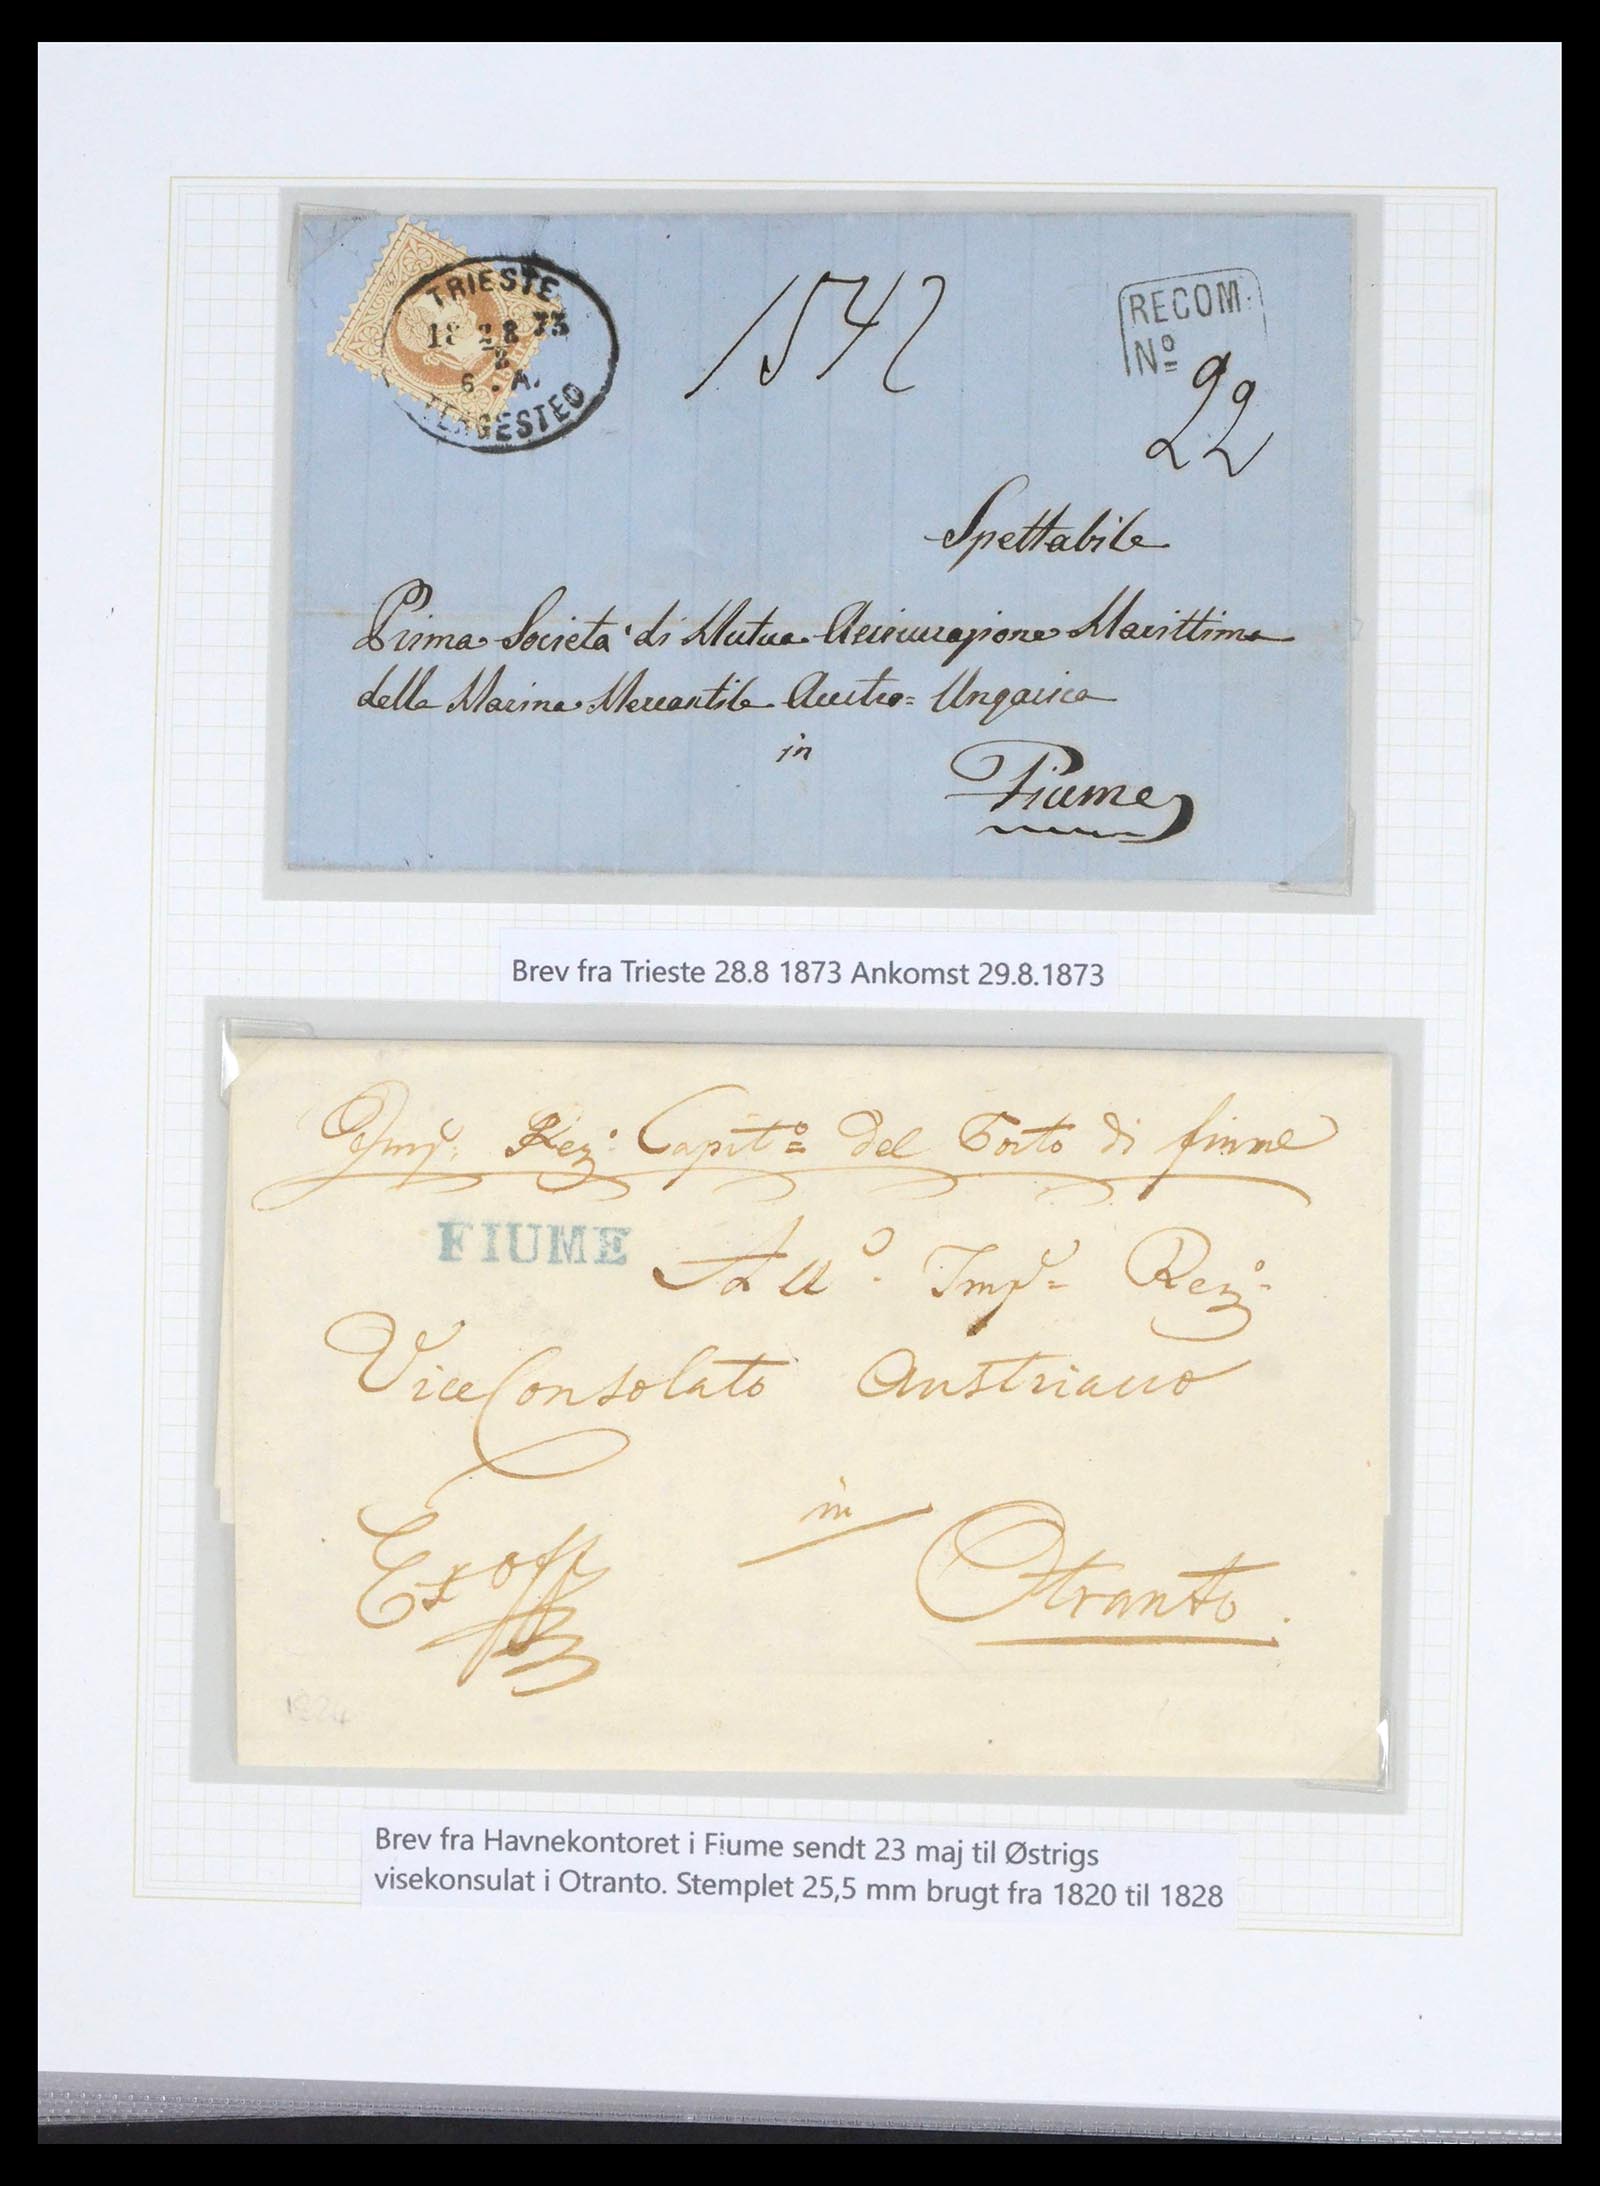 TRIESTE
18 28 73
8
6 . A.
TERGESTEO
1542
RECOM.
Nº
22
Spettabile
Prima Società di Mutua Assicurazione Marittima
della Marina Mercantile Austro=Ungarica
in
Fiume
Brev fra Trieste 28.8 1873 Ankomst 29.8.1873
Capit.º del Porto di fiume
FIUME
All'
ViceConsolato Austriaco
in
Ex off
Otranto.
1824
Brev fra Havnekontoret i Fiume sendt 23 maj til Østrigs
visekonsulat i Otranto. Stemplet 25,5 mm brugt fra 1820 til 1828